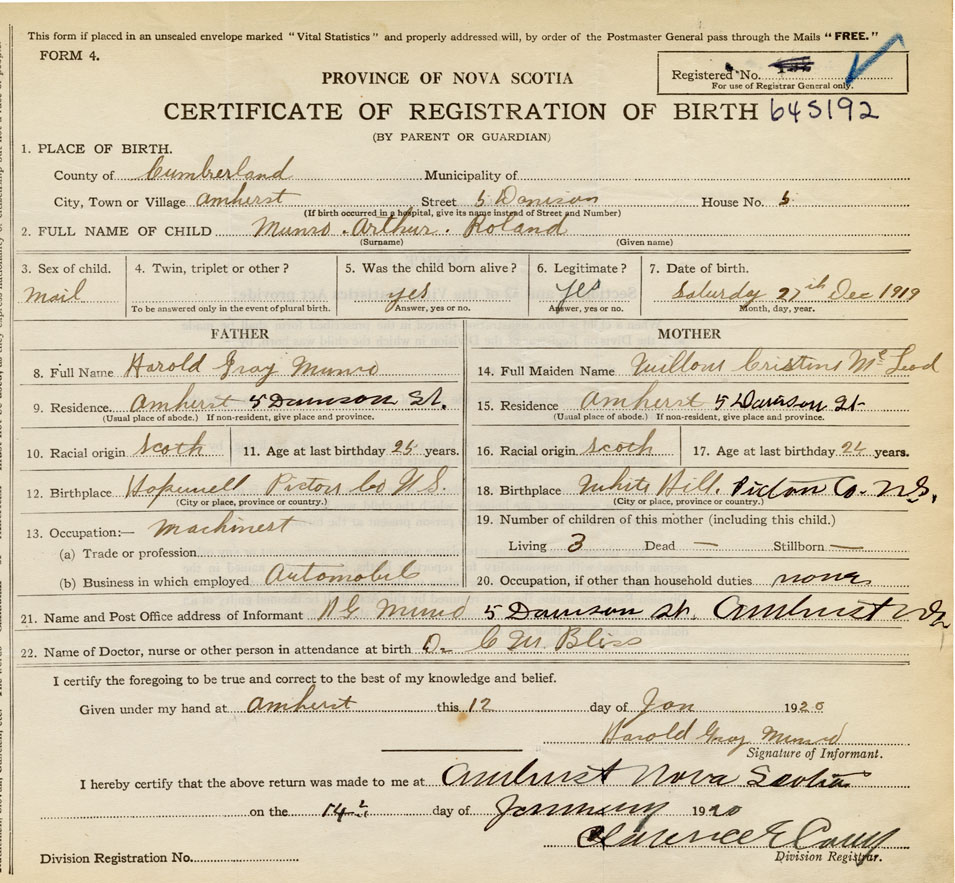 This form if placed in an unsealed envelope marked "Vital Statistics" and properly addressed will, by order of the Postmaster General pass through the Mails "FREE."
FORM 4.
Registered No.
For use of Registrar General only.
PROVINCE OF NOVA SCOTIA
CERTIFICATE OF REGISTRATION OF BIRTH 645192
(BY PARENT OR GUARDIAN)
1. PLACE OF BIRTH.
County of Cumberland Municipality of
City, Town or Village Amherst Street 5 Danison House No. 5
(If birth occurred in a hospital, give its name instead of Street and Number)
2. FULL NAME OF CHILD Munro . Arthur . Roland
(Surname) (Given name)
3. Sex of child. 4. Twin, triplet or other? 5. Was the child born alive? 6. Legitimate? 7. Date of birth.
Mail yes yes Saturdy 27th Dec 1919
To be answered only in the event of plural birth. Answer, yes or no. Answer, yes or no. Month, day, year.
FATHER
8. Full Name Harold Gray Munro
9. Residence. Amherst 5 Danison St.
(Usual place of abode.) If non-resident, give place and province.
10. Racial origin Scoth 11. Age at last birthday 25 years.
12. Birthplace Hopewell Pictou Co N.S.
(City or place, province or country.)
13. Occupation:— Machinest
(a) Trade or profession
(b) Business in which employed Automobile
MOTHER
14. Full Maiden Name Cristina McLeod
15. Residence Amherst 5 St.
(Usual place of abode.) If non-resident, give place and province.
16. Racial origin Scoth 17. Age at last birthday 24 years.
18. Birthplace White Hill. Pictou Co. N.S.
(City or place, province or country.)
19. Number of children of this mother (including this child.)
Living 3 Dead — Stillborn —
20. Occupation, if other than household duties none
21. Name and Post Office address of Informant H G Munro 5 Danison St. Amherst NS
22. Name of Doctor, nurse or other person in attendance at birth Dr C M Bliss
I certify the foregoing to be true and correct to the best of my knowledge and belief.
Given under my hand at Amherst this 12 day of Jan 1920
Harold Gray Munro
Signature of Informant.
I hereby certify that the above return was made to me at Amherst Nova Scotia
on the 14 day of January 1920
Clarence E Casey
Division Registrar.
Division Registration No.